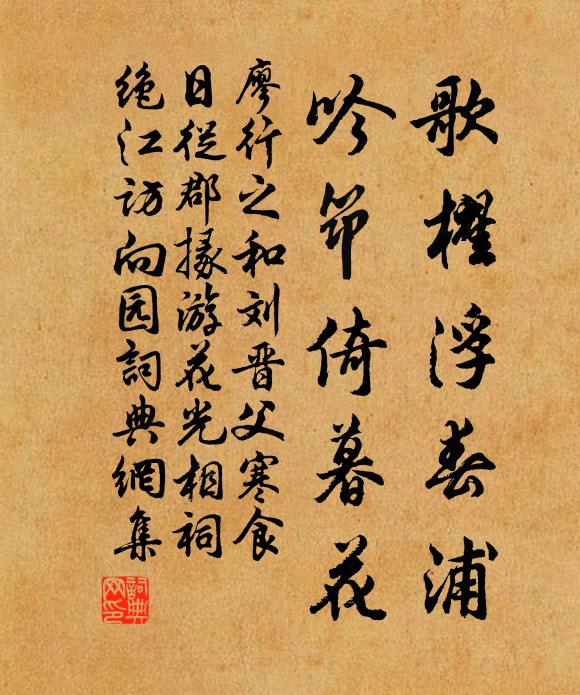 歌櫂浮春浦
吟笻倚暮花
廖行之和刘晋父寒食
日從郡掾游花光相祠
绝江访向园詞典網集
詞典網印